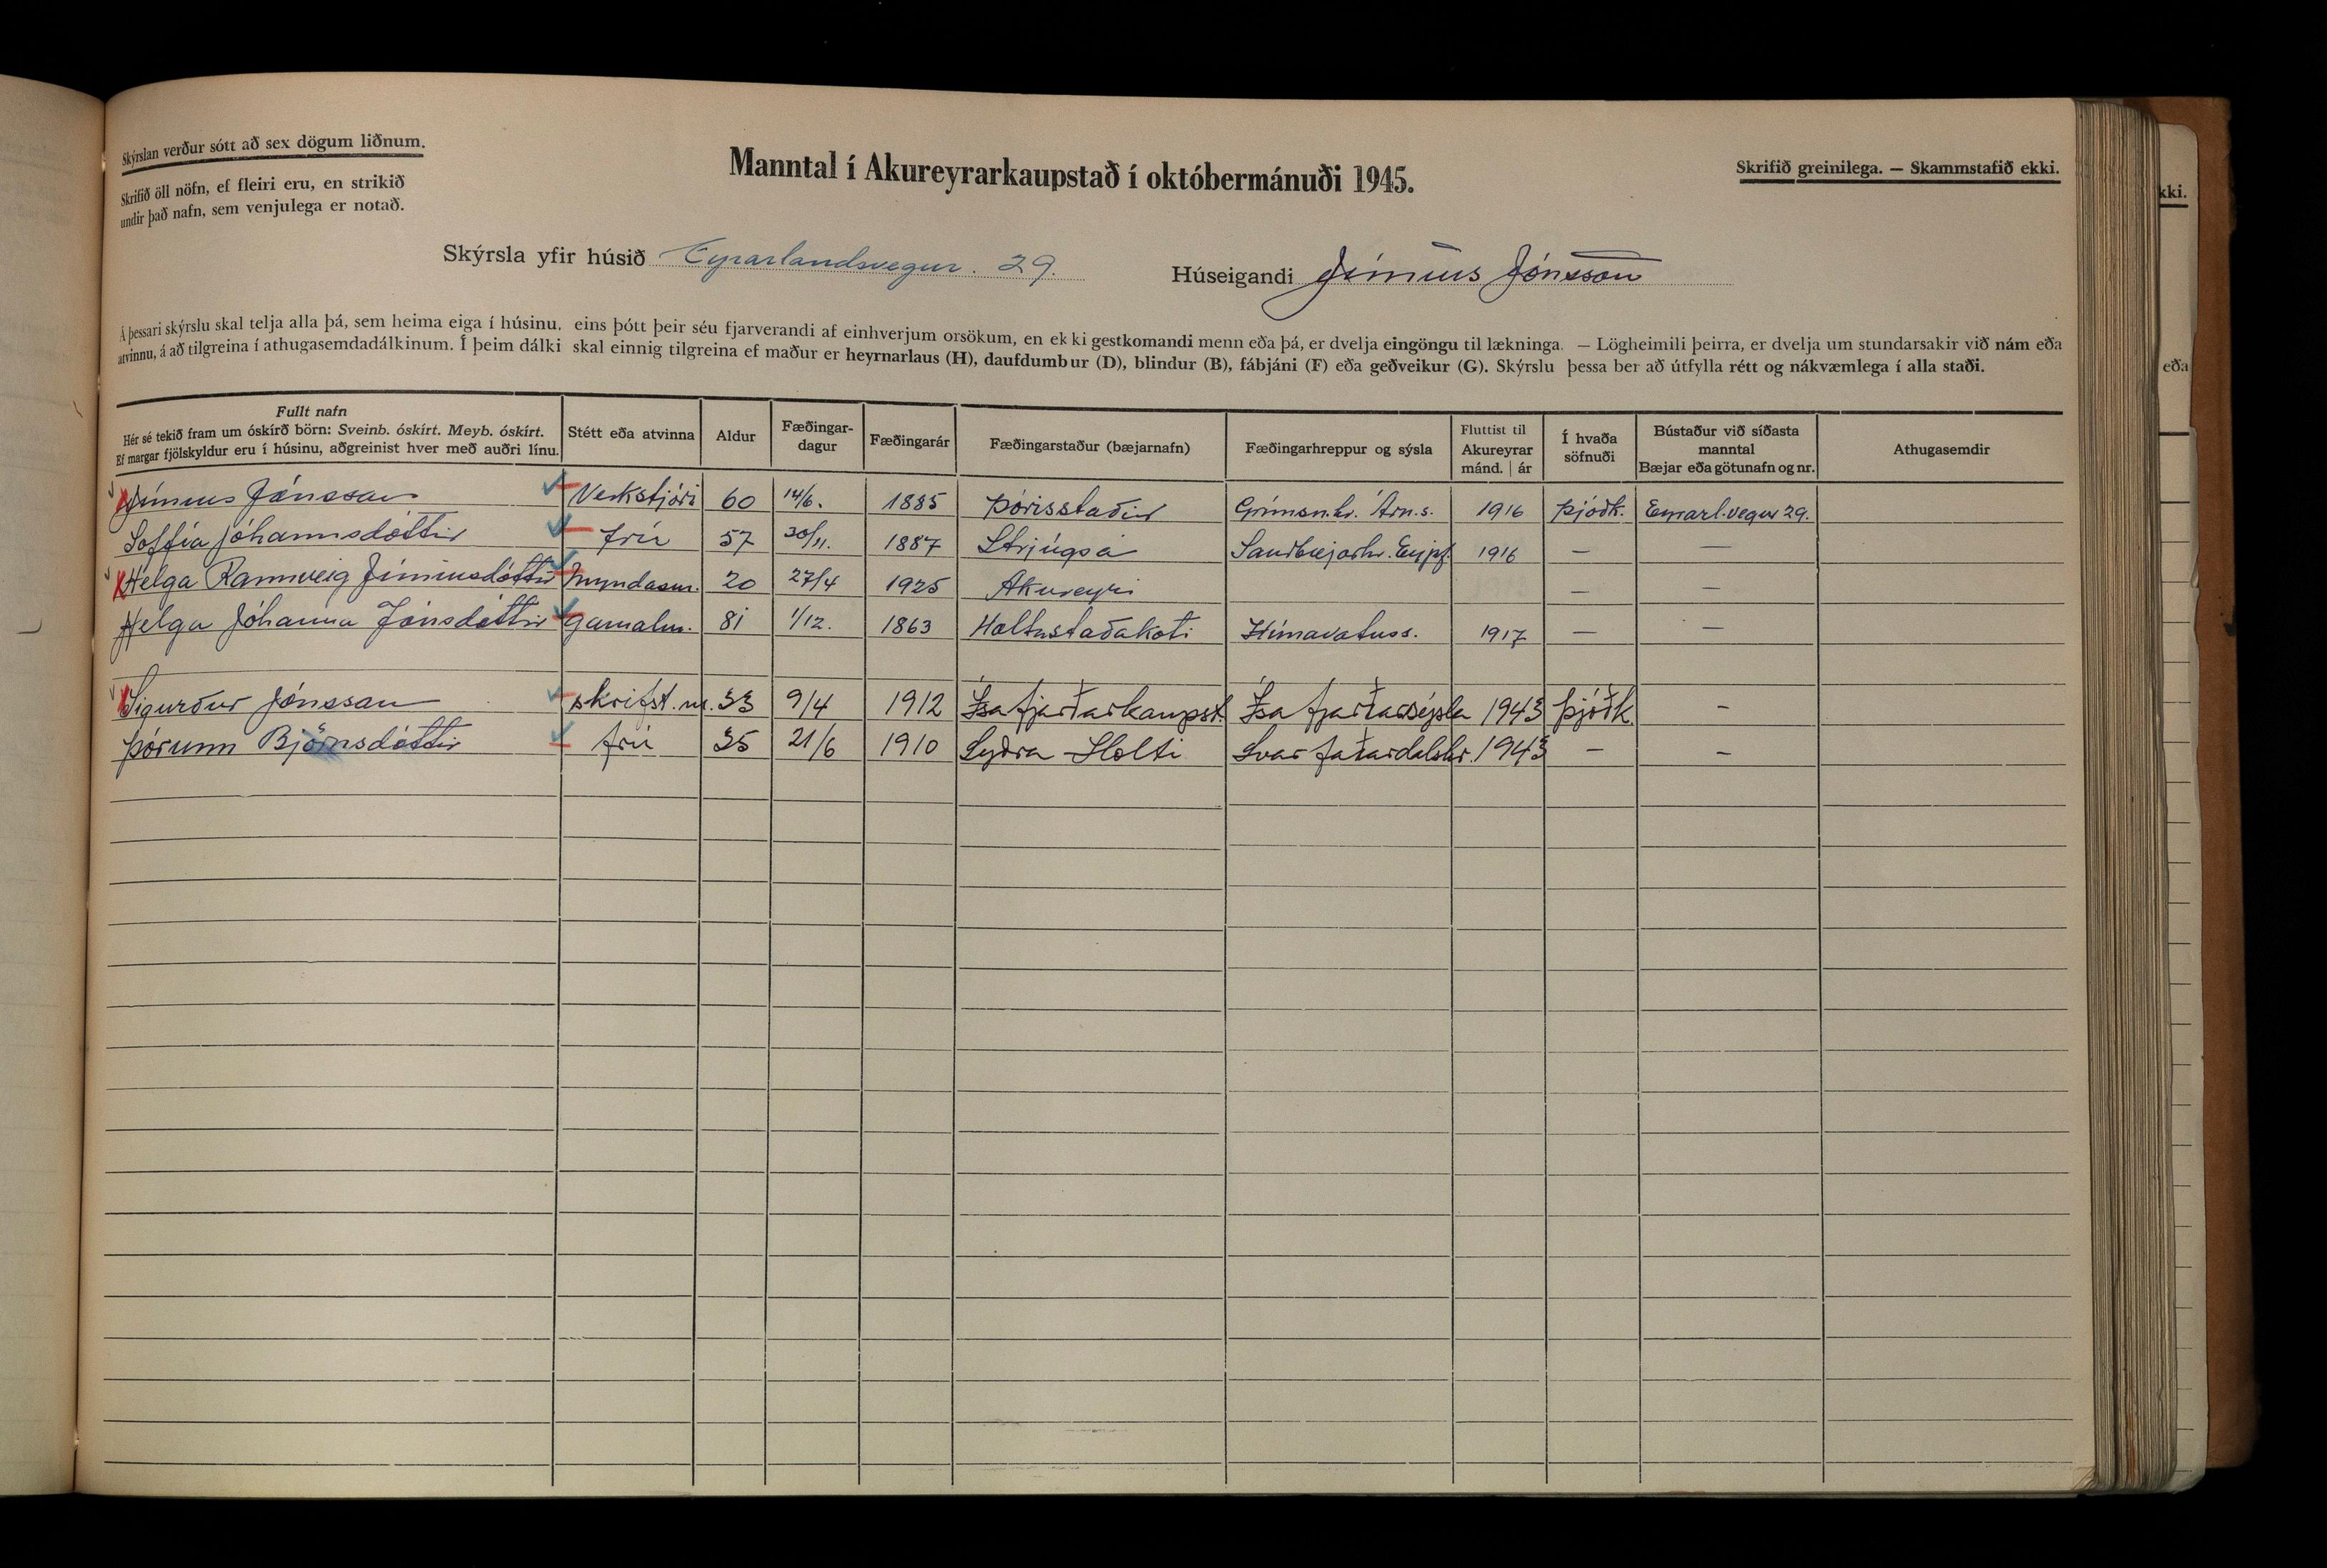 Skýrslan verður sótt að sex dögum liðnum.
Skrifið öll nöfn, ef fleiri eru, en strikið
undir það nafn, sem venjulega er notað.
Manntal í Akureyrarkaupstað í októbermánuði 1945.
Skrifið greinilega. — Skammstafið ekki.
kki.
Skýrsla yfir húsið Eyrarlandsvegur. 29.
Húseigandi Júníus Jónsson
Á þessari skýrslu skal telja alla þá, sem heima eiga í húsinu, eins þótt þeir séu fjarverandi af einhverjum orsökum, en ekki gestkomandi menn eða þá, er dvelja eingöngu til lækninga. — Lögheimili þeirra, er dvelja um stundarsakir við nám eða
atvinnu, á að tilgreina í athugasemdadálkinum. Í þeim dálki skal einnig tilgreina ef maður er heyrnarlaus (H), daufdumbur (D), blindur (B), fábjáni (F) eða geðveikur (G). Skýrslu þessa ber að útfylla rétt og nákvæmlega í alla staði.
eða
Fullt nafn
Hér sé tekið fram um óskírð börn: Sveinb. óskírt. Meyb. óskírt.
Ef margar fjölskyldur eru í húsinu, aðgreinist hver með auðri línu.
Stétt eða atvinna
Aldur
Fæðingar-
dagur
Fæðingarár
Fæðingarstaður (bæjarnafn)
Fæðingarhreppur og sýsla
Fluttist til
Akureyrar
mánd. | ár
Í hvaða
söfnuði
Bústaður við síðasta
manntal
Bæjar eða götunafn og nr.
Athugasemdir
Júníus Jónsson Verkstjóri 60 14/6. 1885 Þórisstaðir Grímsn.hr. Árn.s. 1916 Þjóðk. Eyrarl.vegur 29.
Soffía Jóhannsdóttir frú 57 30/11. 1887 Strjúgsá Saurbæjarhr. Eyjf. 1916 — —
Helga Rannveig Júníusdóttir myndasm. 20 27/4 1925 Akureyri — —
Helga Jóhanna Jónsdóttir gamalm. 81 1/12. 1863 Holtastaðakoti Húnavatnss. 1917 — —
Sigurður Jónsson skrifst.m. 33 9/4 1912 Ísafjarðarkaupst. Ísafjarðarsýsla 1943 Þjóðk. –
Þórunn Björnsdóttir frú 35 21/6 1910 Syðra Holti Svarfaðardalshr. 1943 – –